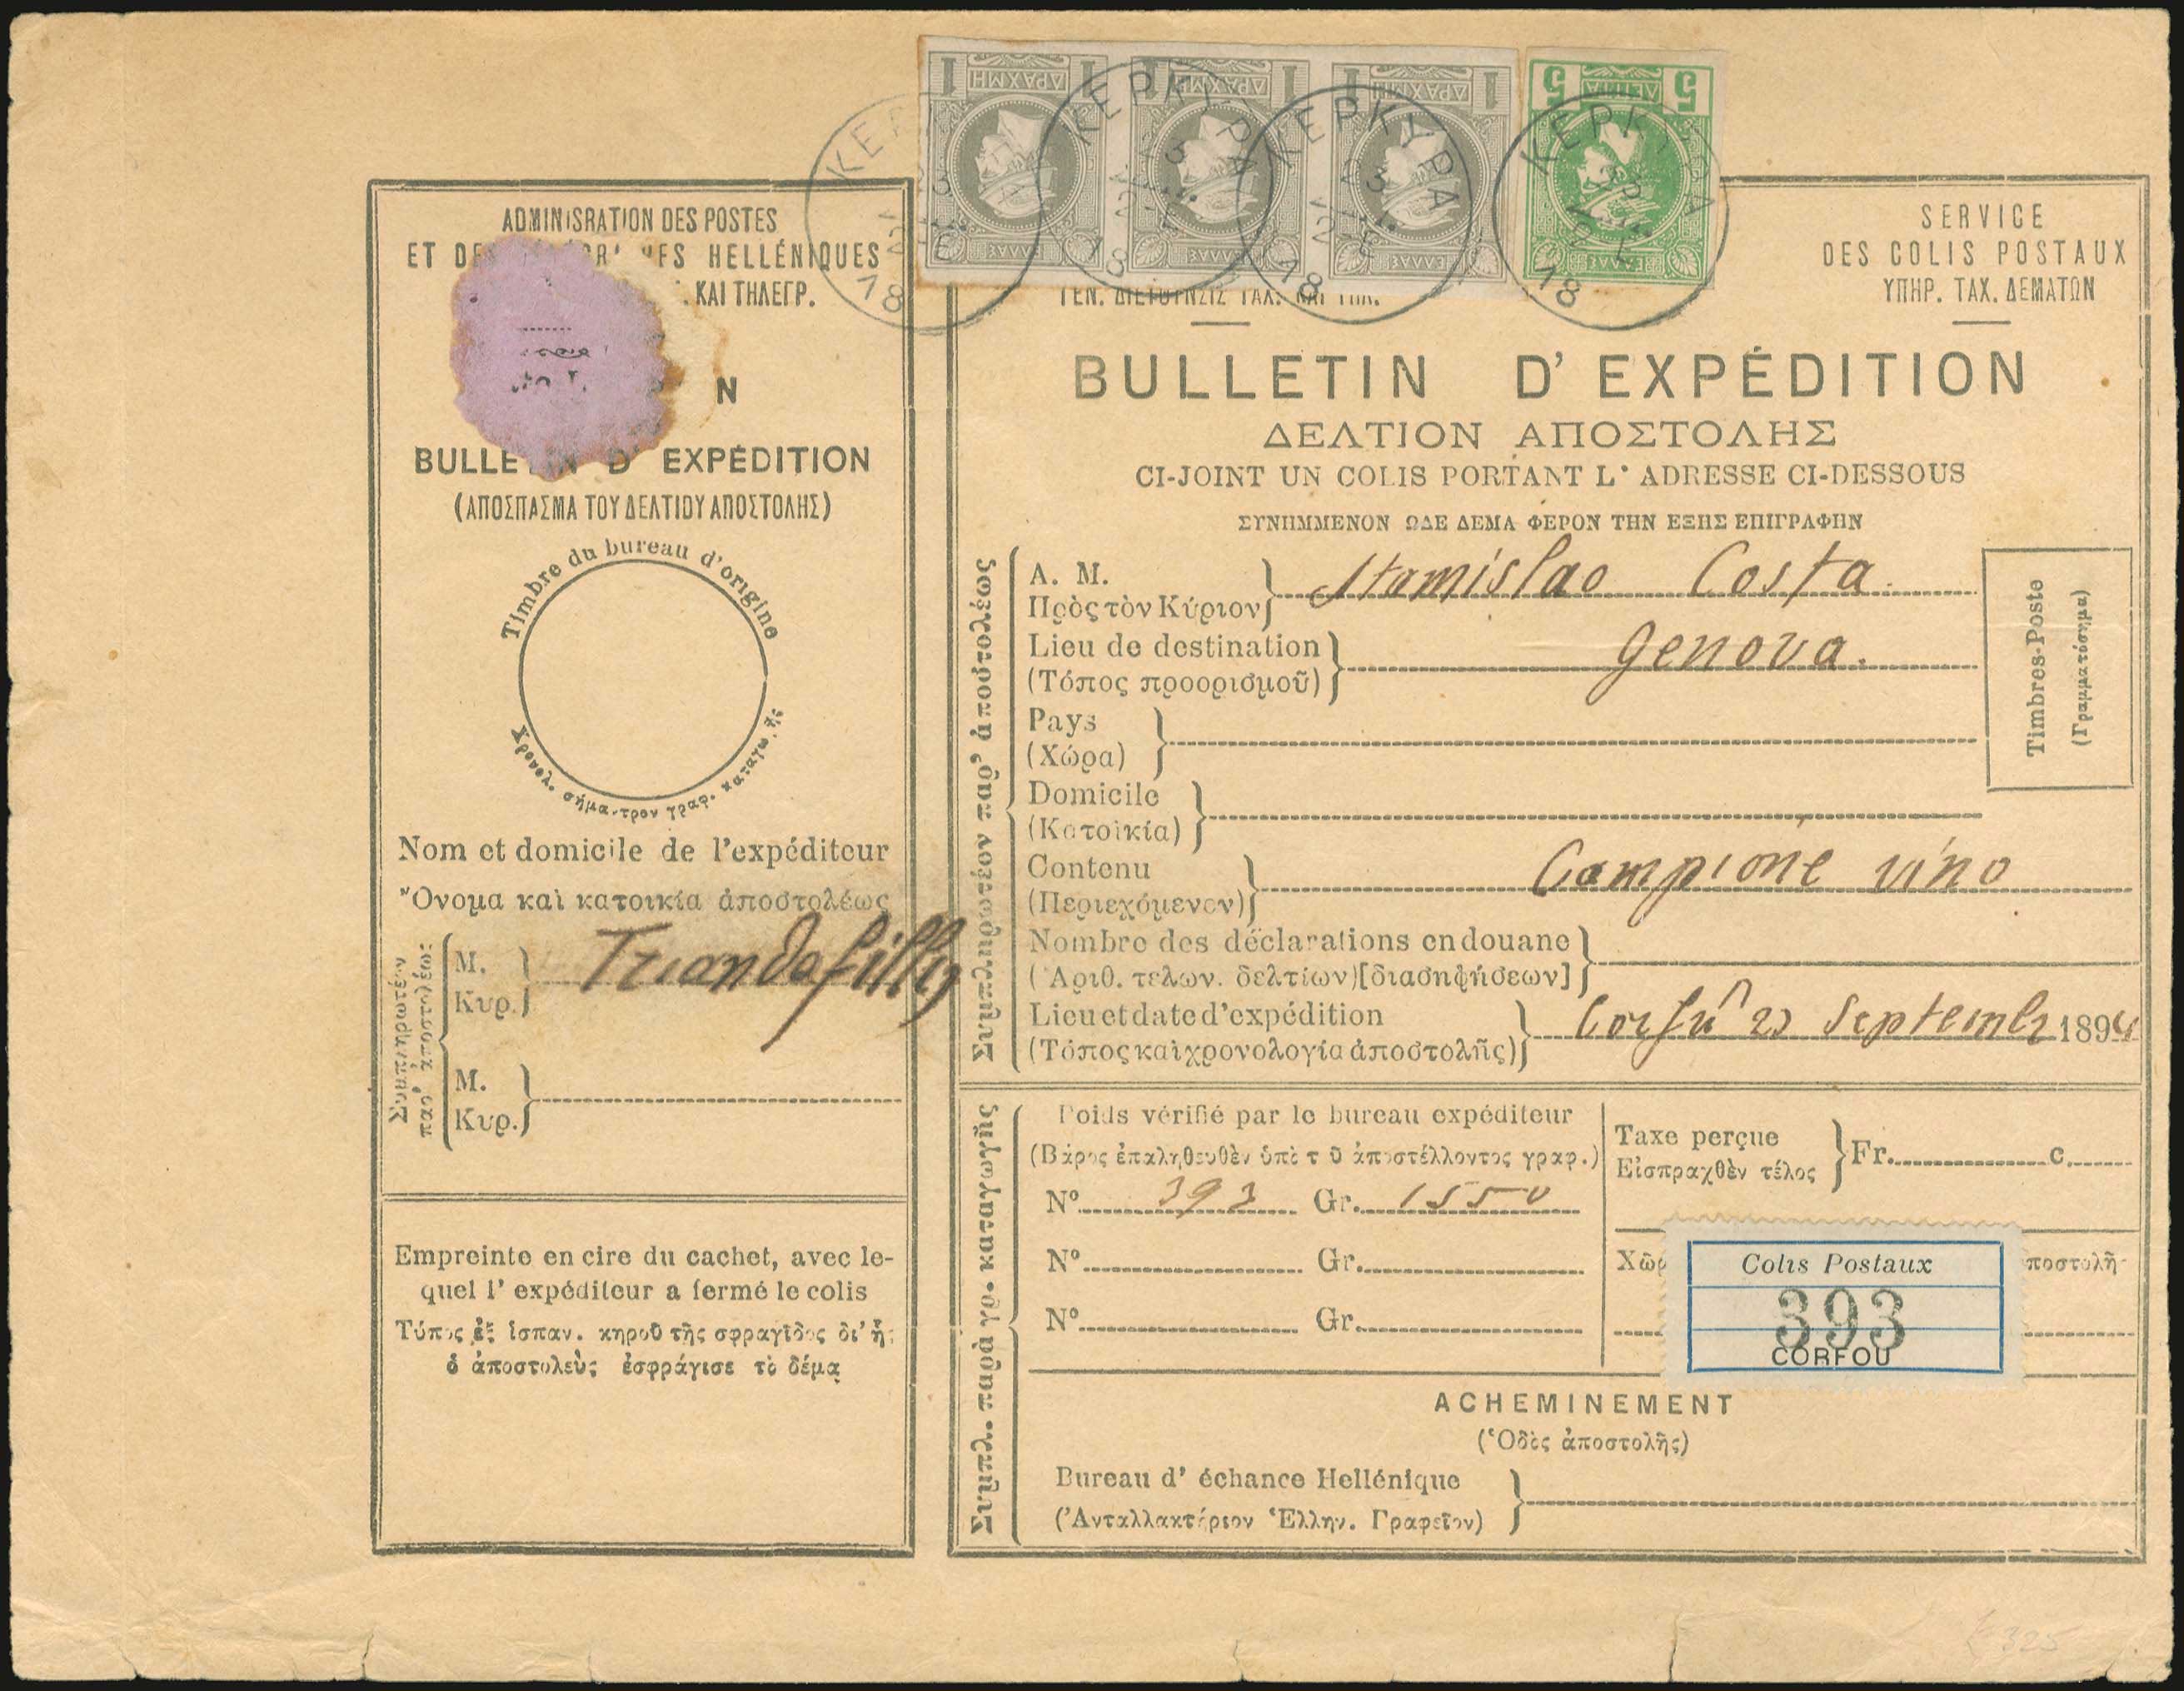 1 ΔΡΑΧΜΗ 1
1 ΔΡΑΧΜΗ 1
1 ΔΡΑΧΜΗ 1
5 ΛΕΠΤΑ 5
ΕΛΛΑΣ
ΕΛΛΑΣ
ΕΛΛΑΣ
ΕΛΛΑΣ
ΚΕΡΚΥΡΑ
23
ΚΕΡΚΥΡΑ
23
ΚΕΡΚΥΡΑ
ADMINISRATION DES POSTES
ET HELLÉNIQUES
ΚΑΙ ΤΗΛΕΓΡ.
N
BULLETIN D' EXPÉDITION
(ΑΠΟΣΠΑΣΜΑ ΤΟΥ ΔΕΛΤΙΟΥ ΑΠΟΣΤΟΛΗΣ)
Timbre du bureau d'origine
Nom et domicile de l'expéditeur
Ὄνομα καὶ κατοικία ἀποστολέως
M. Triandafilly
Κυρ.
M.
Κυρ.
Empreinte en cire du cachet, avec le-
quel l' expéditeur a fermé le colis
Τύπος ἐξ ἱσπαν. κηροῦ τῆς σφραγῖδος δι' ἧς
ὁ ἀποστολεὺς ἐσφράγισε τὸ δέμα
SERVICE
DES COLIS POSTAUX
ΥΠΗΡ. ΤΑΧ. ΔΕΜΑΤΩΝ
BULLETIN D' EXPÉDITION
ΔΕΛΤΙΟΝ ΑΠΟΣΤΟΛΗΣ
CI-JOINT UN COLIS PORTANT L' ADRESSE CI-DESSOUS
ΣΥΝΗΜΜΕΝΟΝ ΩΔΕ ΔΕΜΑ ΦΕΡΟΝ ΤΗΝ ΕΞΗΣ ΕΠΙΓΡΑΦΗΝ
Συμπληρωτέον παρ' ἀποστολέως
A. M. Stanislao Costa.
Πρὸς τὸν Κύριον
Lieu de destination Genova.
(Τόπος προορισμοῦ)
Pays
(Χώρα)
Domicile
(Κατοικία)
Timbres-Poste
(Γραμματόσημα)
Contenu Campione vino
(Περιεχόμενον)
Nombre des déclarations en douane
(Ἀριθ. τελων. δελτίων)[διασαφήσεων]
Lieu et date d'expédition Corfu 23 Septembr 1894
(Τόπος καὶ χρονολογία ἀποστολῆς)
Poids vérifié par le bureau expéditeur
(Βάρος ἐπαληθευθὲν ὑπὸ τοῦ ἀποστέλλοντος γραφ.)
Nº 393 Gr. 1550
Nº Gr.
Nº Gr.
Taxe perçue Fr. c.
Εἰσπραχθὲν τέλος
Colis Postaux
393
CORFOU
ACHEMINEMENT
(Ὁδὸς ἀποστολῆς)
Bureau d' échance Hellénique
(Ἀνταλλακτήριον Ἑλλην. Γραφεῖον)